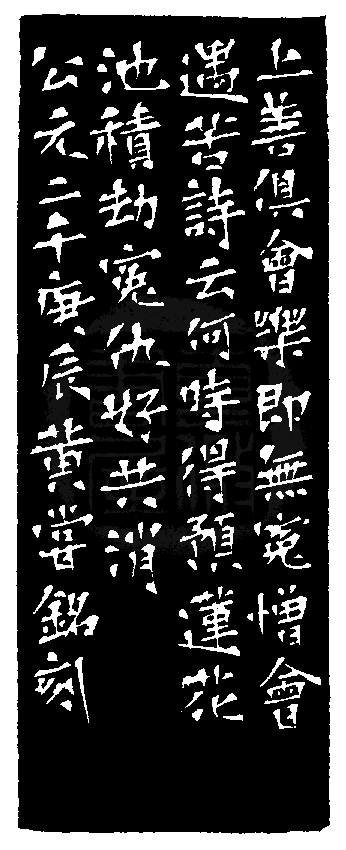 上善俱會樂即無冤憎會
遇苦詩云何時得預蓮花
池積劫冤仇好共消
公元二千庚辰黄嘗銘刻